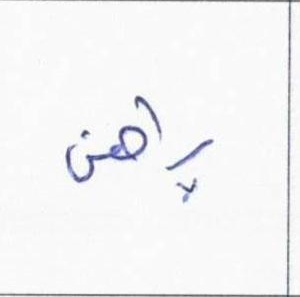 پراهن